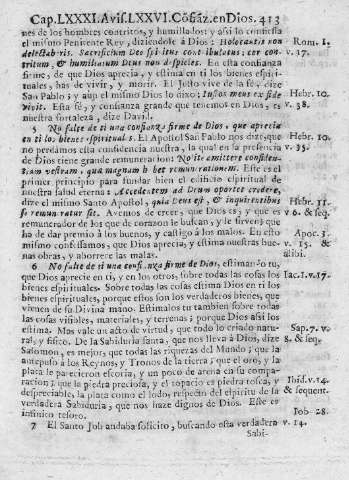 Cap. LXXXI. Avis. LXXVI. Cōfiāz. en Dios. 413
nes de los hombres contritos, y humillados: y assi lo confiessa
el mismo Penitente Rey, diziendole à Dios: Holocautis non
delectaberis. Sacrificium Deo spiritus contribulatus: cor con-
tritum, & humiliatum Deus non despicies. En esta confiança
firme, de que Dios aprecia, y estima en ti los bienes espiri-
tuales, has de vivir, y morir. El Justo vive de la fé, dize
San Pablo; y aqui el mismo Dios lo dixo: Iustus meus ex fide
vivit. Esta fé, y confiança grande que tenemos en Dios, es
nuestra fortaleza, dize David.
5 No falte de ti una confianza firme de Dios, que aprecia
en ti los bienes espirituales. El Apostol San Pablo nos dize, que
no perdamos esta confiança nuestra, la qual en la presencia
de Dios tiene grande remuneracion: Nolite amittere confiden-
tiam vestram, quæ magnam habet remunerationem. Este es el
primer principio para fundar bien el edificio espiritual de
nuestra salud eterna: Accedentem ad Deum oportet credere,
dize el mismo Santo Apostol, quia Deus est, & inquirentibus
se remunerator sit. Avemos de creer, que Dios es; y que es
remunerador de los que de corazon le buscan, y le sirven: que
ha de dar premio à los buenos, y castigo à los malos. En esto
mismo confessamos, que Dios aprecia, y estima nuestras bue-
nas obras, y aborrece las malas.
6 No falte de ti una confianza firme de Dios, estimando tu,
que Dios aprecie en ti, y en los otros, sobre todas las cosas los
bienes espirituales. Sobre todas las cosas estima Dios en ti los
bienes espirituales, porque estos son los verdaderos bienes, que
vienen de su Divina mano. Estimalos tu tambien sobre todas
las cosas visibles, materiales, y terrenas; porque Dios assi los
estima. Mas vale un acto de virtud, que todo lo criado natu-
ral, y fisico. De la Sabiduria santa, que nos lleva à Dios, dize
Salomon, es mejor, que todas las riquezas del Mundo; que la
antepuso à los Reynos, y Tronos de la tierra; que el oro, y la
plata le parecieron escoria, y un poco de arena en su compa-
racion; que la piedra preciosa, y el topacio es piedra tosca, y
despreciable, la plata como el lodo, respecto del espiritu de la
verdadera Sabiduria, que nos haze dignos de Dios. Este es
infinito tesoro.
7 El Santo Job andaba solicito, buscando esta verdadera
Sabi-
Rom. 1.
v. 17.
Hebr. 10.
v. 38.
Hebr. 10.
v. 35.
Hebr. 11
v. 6. & seq.
Apoc. 3.
v. 15. &
alibi.
Iac. 1. v. 17.
Sap. 7. v.
8. & seq.
Ibid. v. 14.
& sequent.
Iob 28.
v. 14.